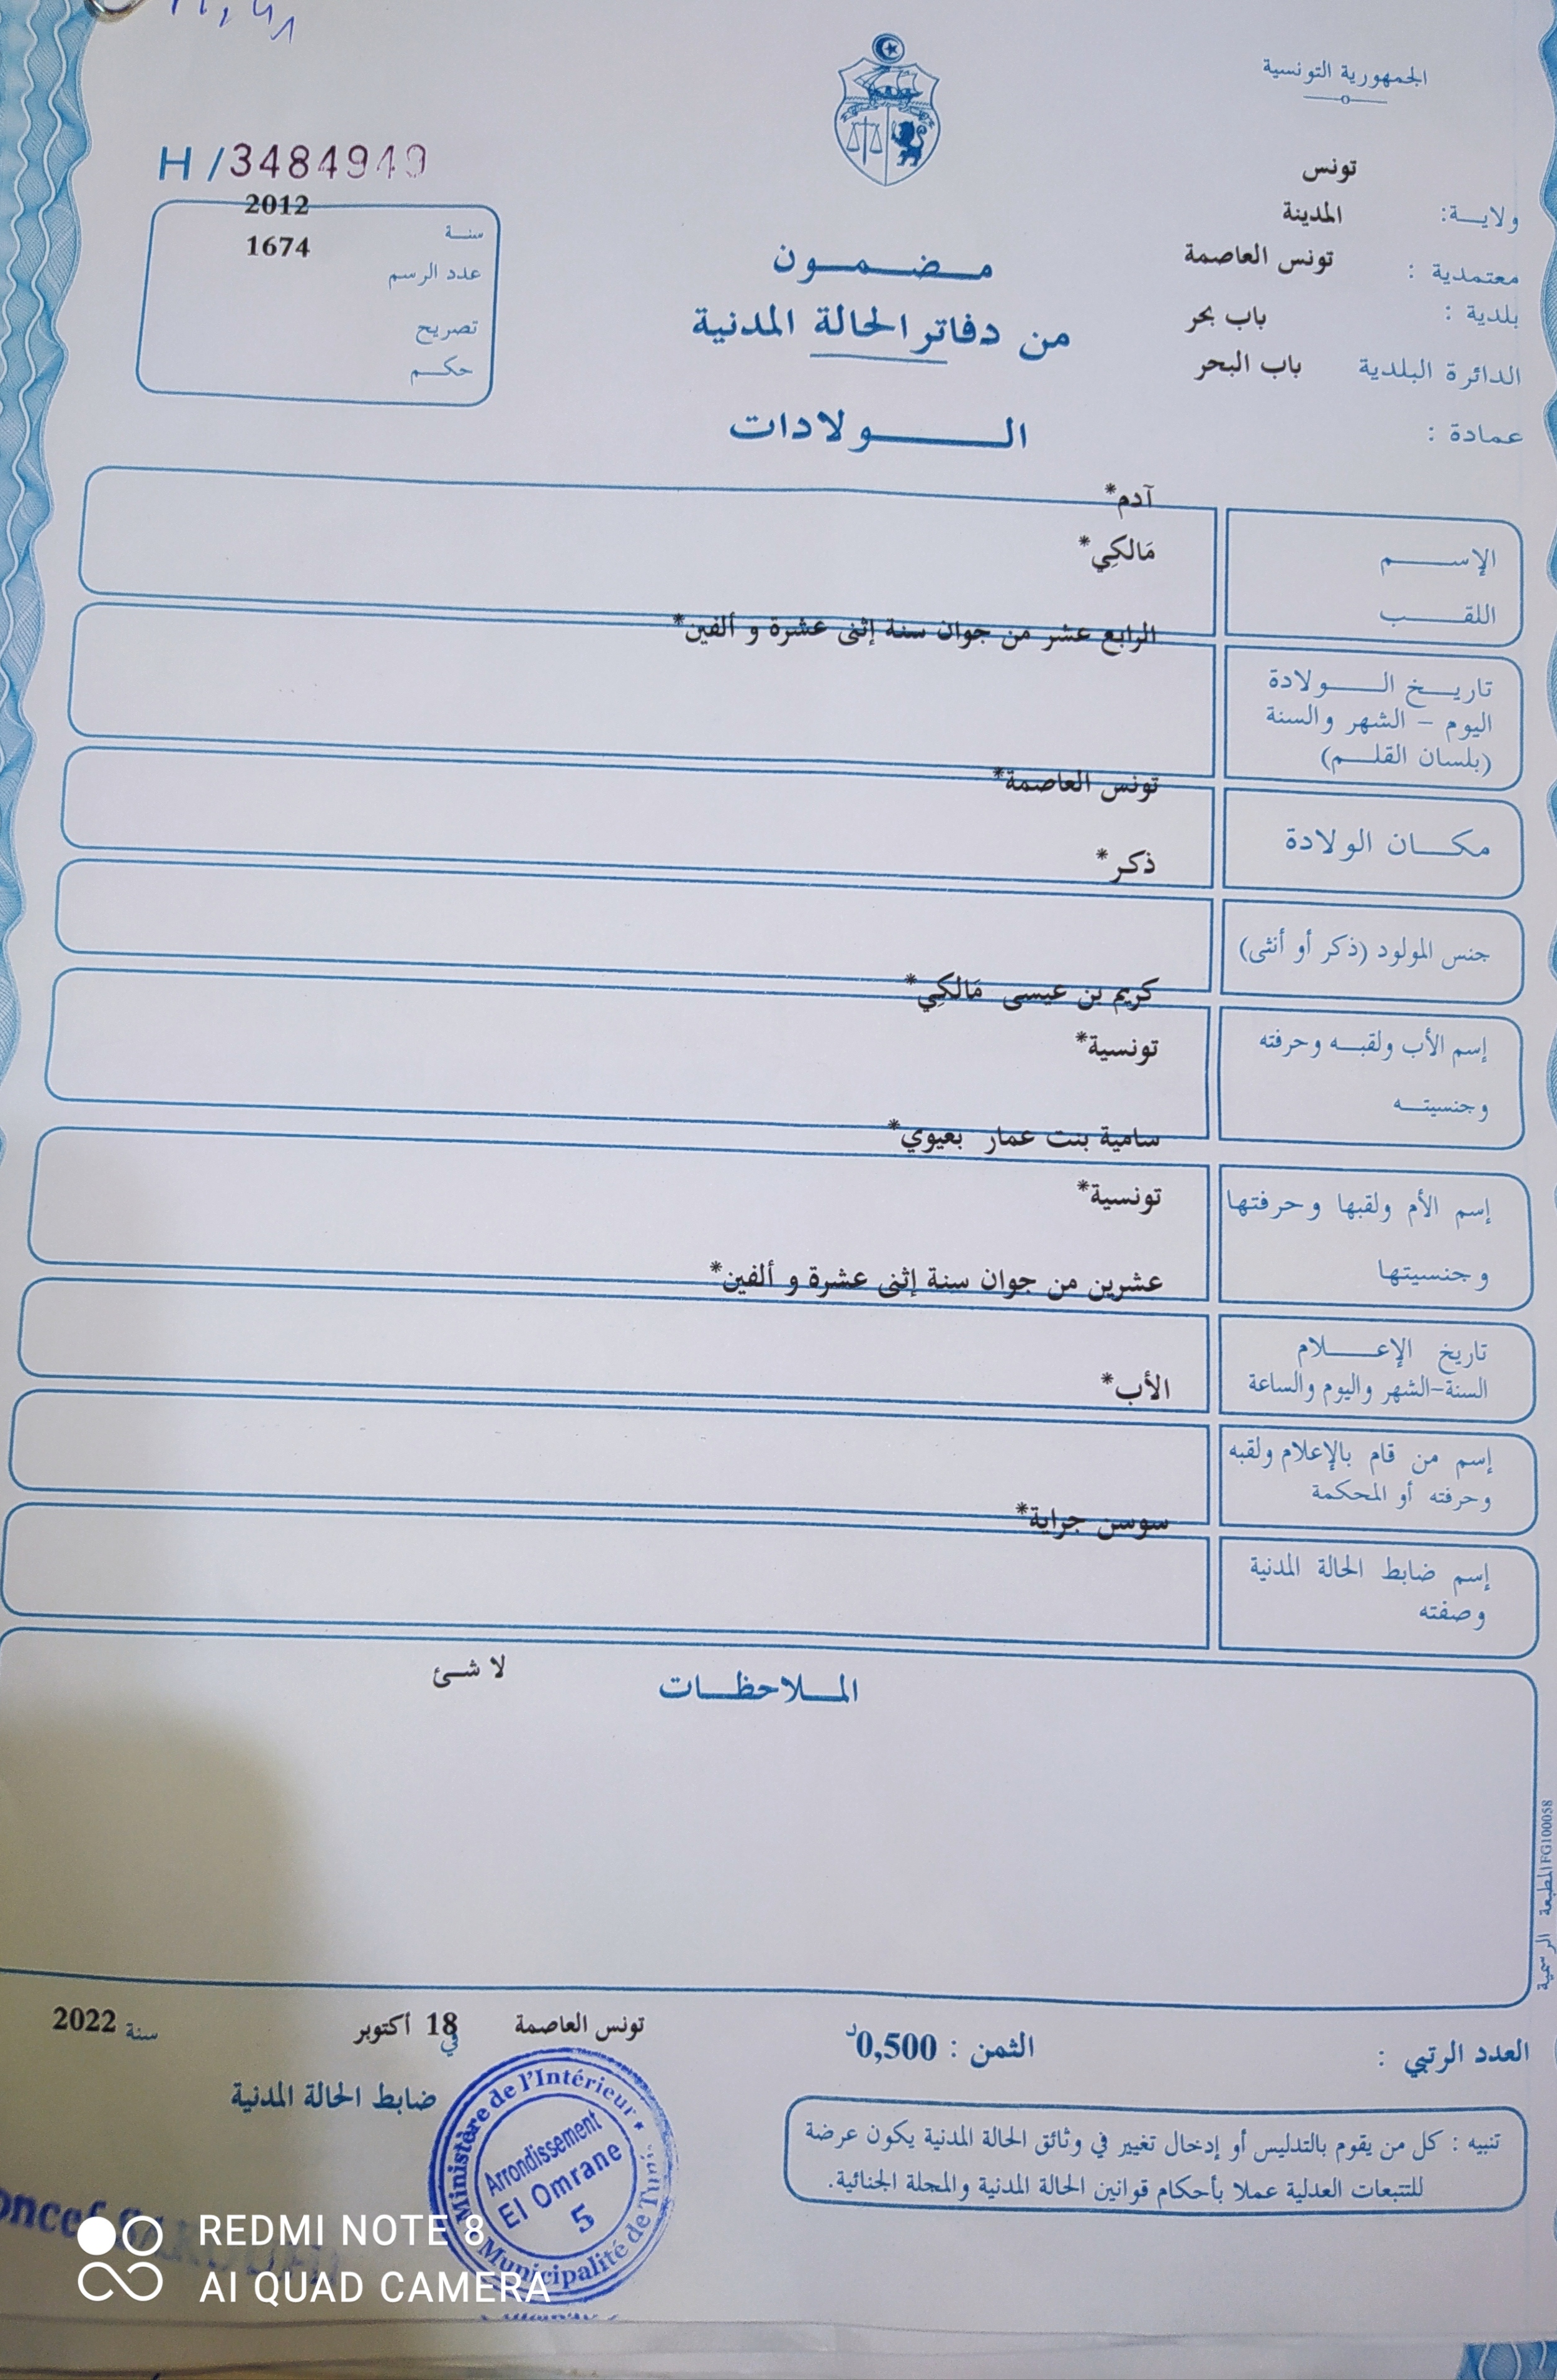 الجمهورية التونسية
H/3484949
تونس
ولايـة: المدينة
معتمدية : تونس العاصمة
بلدية : باب بحر
الدائرة البلدية باب البحر
عمادة :
سنـة 2012
عدد الرسم 1674
تصريح
حكـم
مـضـمـون
من دفاتر الحالة المدنية
الـولادات
آدم*
الإسـم
مَالكِي*
اللقـب
الرابع عشر من جوان سنة إثنى عشرة و ألفين*
تاريـخ الـولادة
اليوم – الشهر والسنة
(بلسان القلـم)
تونس العاصمة*
مكـان الولادة
ذكر*
جنس المولود (ذكر أو أنثى)
كريم بن عيسى مَالكِي*
إسم الأب ولقبـه وحرفته
تونسية*
وجنسيتـه
سامية بنت عمار بعيوي*
إسم الأم ولقبها وحرفتها
تونسية*
وجنسيتها
عشرين من جوان سنة إثنى عشرة و ألفين*
تاريخ الإعـلام
السنة-الشهر واليوم والساعة
الأب*
إسم من قام بالإعلام ولقبه
وحرفته أو المحكمة
سوسن جراية*
إسم ضابط الحالة المدنية
وصفته
المـلاحظـات لا شـئ
المطبعة الرسمية FG100058
العدد الرتبي :
الثمن : 0,500د
تونس العاصمة في 18 أكتوبر سنة 2022
ضابط الحالة المدنية
تنبيه : كل من يقوم بالتدليس أو إدخال تغيير في وثائق الحالة المدنية يكون عرضة
للتتبعات العدلية عملا بأحكام قوانين الحالة المدنية والمجلة الجنائية.
Ministère de l'Intérieur *
Arrondissement
El Omrane
5
Municipalité de Tunis
REDMI NOTE 8
AI QUAD CAMERA